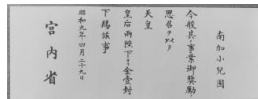 南加小児園
今般其ノ事業御奨励ノ
思召ヲ以テ
天皇
皇后両陛下ヨリ金壹封
下賜候事
昭和九年四月二十九日
宮内省